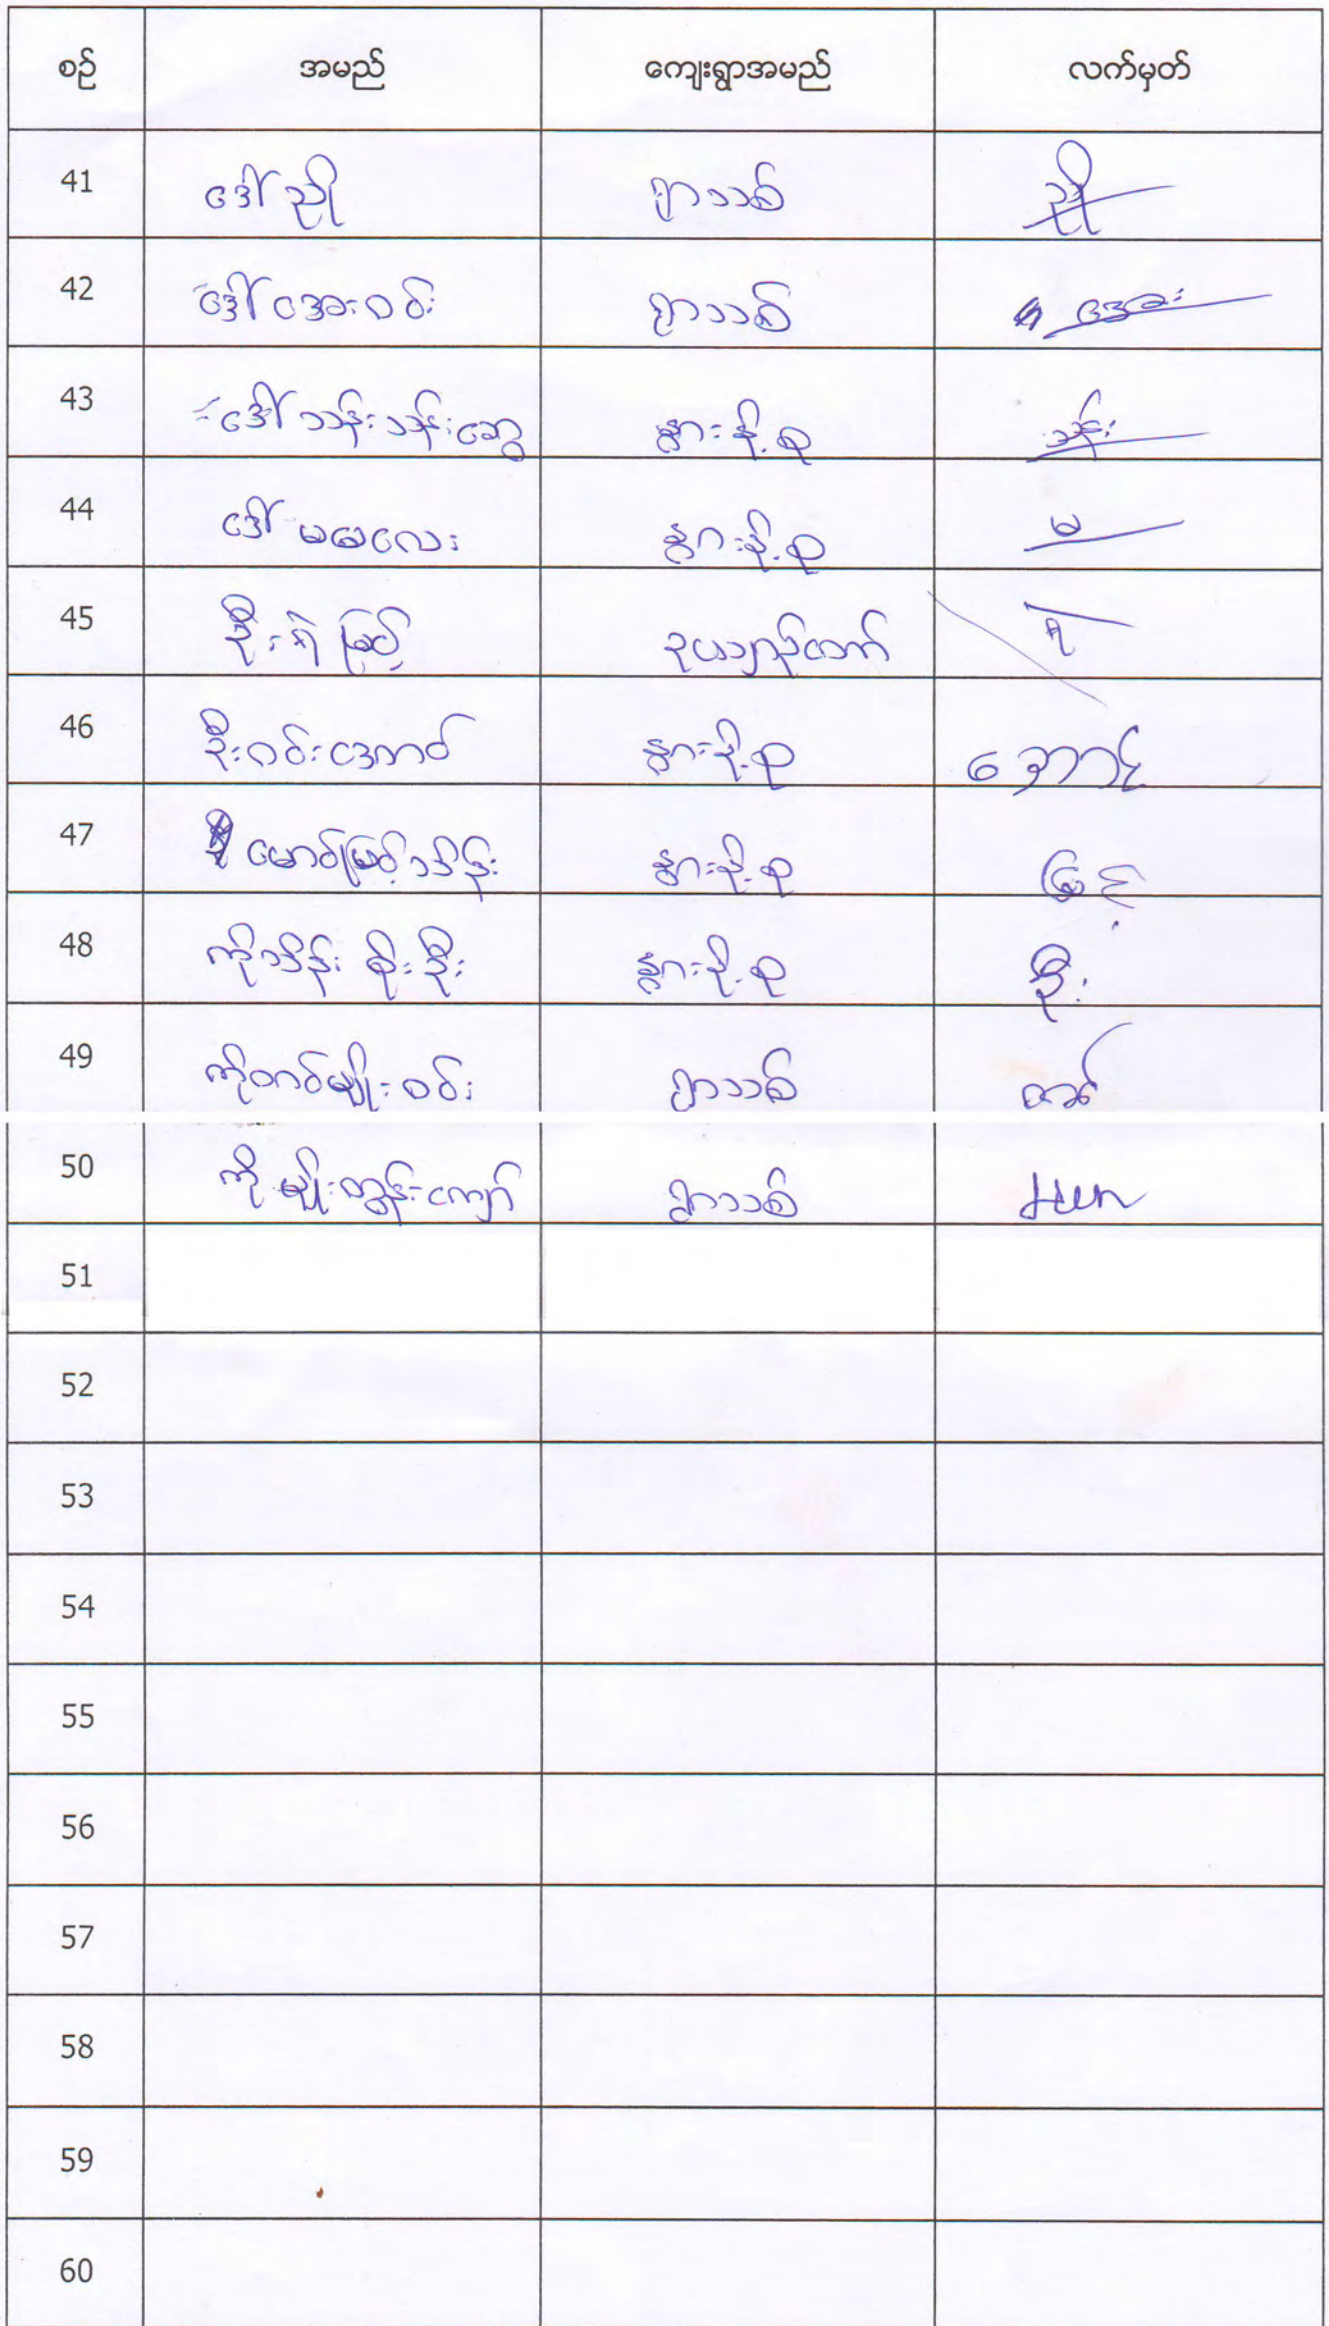 စဉ် အမည် ကျေးရွာအမည် လက်မှတ်
41 ဒေါ်ညို ရွာသစ် ညို
42 ဒေါ်အေးဝင်း ရွာသစ် အေး
43 ဒေါ်သန်းသန်းဆွေ နွားနို့စု သန်း
44 ဒေါ်မမလေး နွားနို့စု မ
45 ဦးရဲမြင့် ဥယျာဉ်တော် ရဲ
46 ဦးဝင်းအောင် နွားနို့စု အောင်
47 မောင်မြင့်သိန်း နွားနို့စု မြင့်
48 ကိုသိန်းစိုးဦး နွားနို့စု ဦး
49 ကိုတင်မျိုးဝင်း ရွာသစ် တင်
50 ကိုမျိုးထွန်းကျော် ရွာသစ်
51
52
53
54
55
56
57
58
59
60